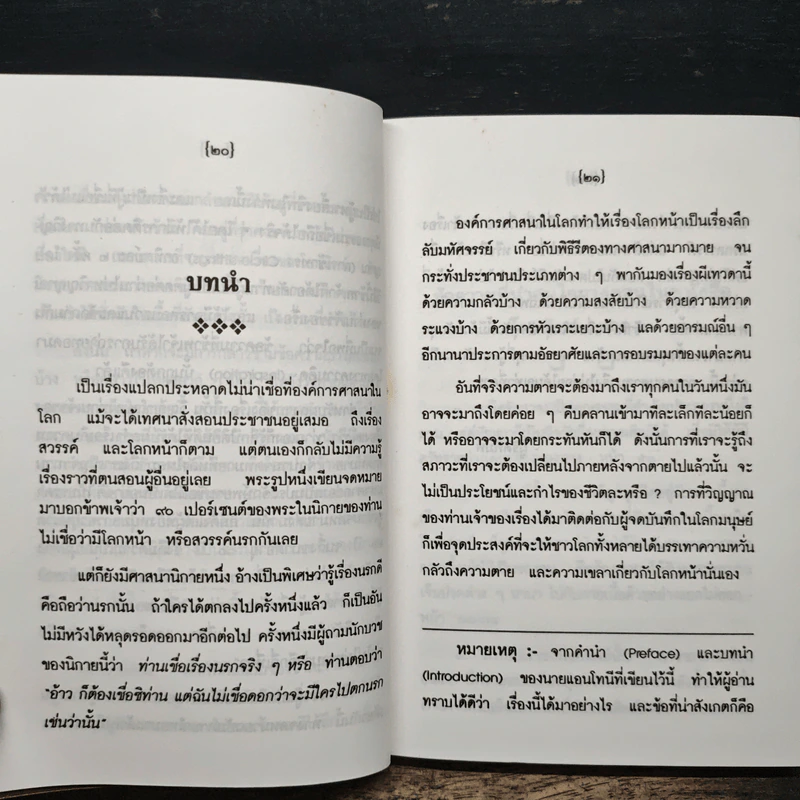 {๒๐}
บทนำ
❖❖❖
เป็นเรื่องแปลกประหลาดไม่น่าเชื่อที่องค์การศาสนาใน
โลก แม้จะได้เทศนาสั่งสอนประชาชนอยู่เสมอ ถึงเรื่อง
สวรรค์ และโลกหน้าก็ตาม แต่ตนเองก็กลับไม่มีความรู้
เรื่องราวที่ตนสอนผู้อื่นอยู่เลย พระรูปหนึ่งเขียนจดหมาย
มาบอกข้าพเจ้าว่า ๙๐ เปอร์เซนต์ของพระในนิกายของท่าน
ไม่เชื่อว่ามีโลกหน้า หรือสวรรค์นรกกันเลย
แต่ก็ยังมีศาสนานิกายหนึ่ง อ้างเป็นพิเศษว่ารู้เรื่องนรกดี
คือถือว่านรกนั้น ถ้าใครได้ตกลงไปครั้งหนึ่งแล้ว ก็เป็นอัน
ไม่มีหวังได้หลุดรอดออกมาอีกต่อไป ครั้งหนึ่งมีผู้ถามนักบวช
ของนิกายนี้ว่า ท่านเชื่อเรื่องนรกจริง ๆ หรือ ท่านตอบว่า
"อ้าว ก็ต้องเชื่อซิท่าน แต่ฉันไม่เชื่อดอกว่าจะมีใครไปตกนรก
เช่นว่านั้น"
{๒๑}
องค์การศาสนาในโลกทำให้เรื่องโลกหน้าเป็นเรื่องลึก
ลับมหัศจรรย์ เกี่ยวกับพิธีรีตองทางศาสนามากมาย จน
กระทั่งประชาชนประเภทต่าง ๆ พากันมองเรื่องผีเทวดานี้
ด้วยความกลัวบ้าง ด้วยความสงสัยบ้าง ด้วยความหวาด
ระแวงบ้าง ด้วยการหัวเราะเยาะบ้าง แลด้วยอารมณ์อื่น ๆ
อีกนานาประการตามอัธยาศัยและการอบรมมาของแต่ละคน
อันที่จริงความตายจะต้องมาถึงเราทุกคนในวันหนึ่งมัน
อาจจะมาถึงโดยค่อย ๆ คืบคลานเข้ามาทีละเล็กทีละน้อยก็
ได้ หรืออาจจะมาโดยกระทันหันก็ได้ ดังนั้นการที่เราจะรู้ถึง
สภาวะที่เราจะต้องเปลี่ยนไปภายหลังจากตายไปแล้วนั้น จะ
ไม่เป็นประโยชน์และกำไรของชีวิตละหรือ ? การที่วิญญาณ
ของท่านเจ้าของเรื่องได้มาติดต่อกับผู้จดบันทึกในโลกมนุษย์
ก็เพื่อจุดประสงค์ที่จะให้ชาวโลกทั้งหลายได้บรรเทาความหวั่น
กลัวถึงความตาย และความเขลาเกี่ยวกับโลกหน้านั่นเอง
หมายเหตุ :- จากคำนำ (Preface) และบทนำ
(Introduction) ของนายแอนโทนีที่เขียนไว้นี้ ทำให้ผู้อ่าน
ทราบได้ดีว่า เรื่องนี้ได้มาอย่างไร และข้อที่น่าสังเกตก็คือ